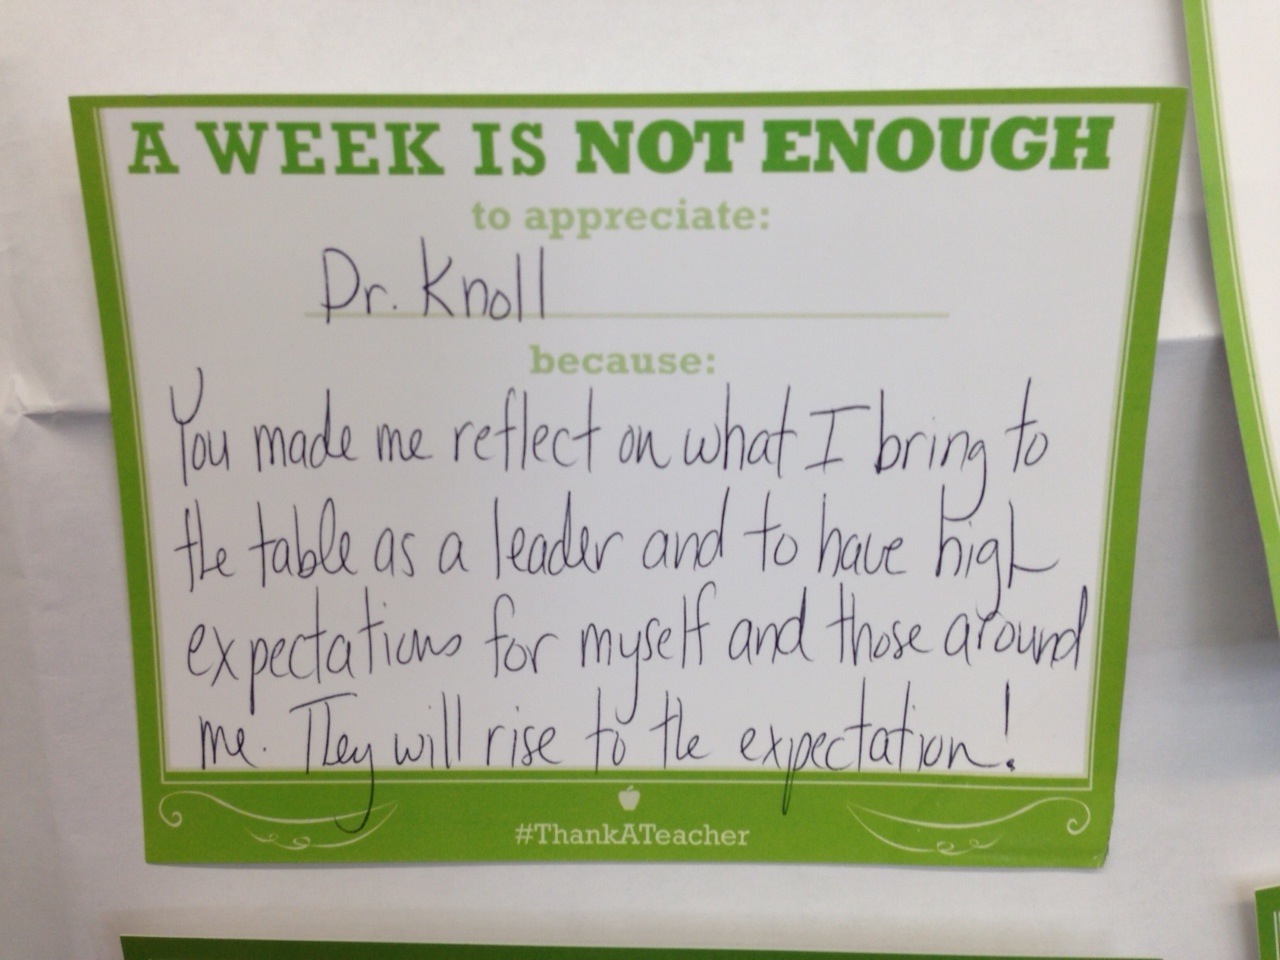 A WEEK IS NOT ENOUGH
to appreciate:
Dr. Knoll
because:
You made me reflect on what I bring to
the table as a leader and to have high
expectations for myself and those around
me. They will rise to the expectation!
#ThankATeacher